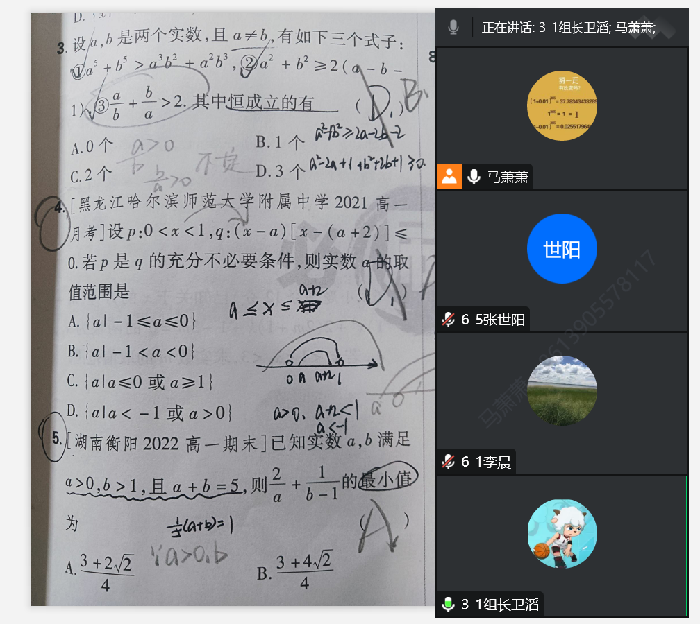 3. 设a,b是两个实数,且a≠b,有如下三个式子:
①a⁵+b⁵>a³b²+a²b³,②a²+b²≥2(a-b-
1),③a/b+b/a>2.其中恒成立的有 ( D )B
a>0
A.0个 B.1个 a²+b²≥2a-2b-2
不负
C.2个 b/a>0 D.3个 a²-2a+1+b²+2b+1≥0
4. [黑龙江哈尔滨师范大学附属中学2021高一
月考]设p:0<x<1,q:(x-a)[x-(a+2)]≤
0.若p是q的充分不必要条件,则实数a的取
值范围是 a≤x≤a+2 ( )
A.{a|-1≤a≤0}
B.{a|-1<a<0}
C.{a|a≤0或a≥1}
0 a a+2 1
D.{a|a<-1或a>0} a>0. a+2<1
a<-1
a 0
5. [湖南衡阳2022高一期末]已知实数a,b满足
a>0,b>1,且a+b=5,则2/a+1/(b-1)的最小值
为 (A)
⅕(a+b)=1
∵a>0,b
A.(3+2√2)/4 B.(3+4√2)/4
正在讲话: 3 1组长卫滔; 马萧萧;
马萧萧
世阳
6 5张世阳
6 1李晨
3 1组长卫滔